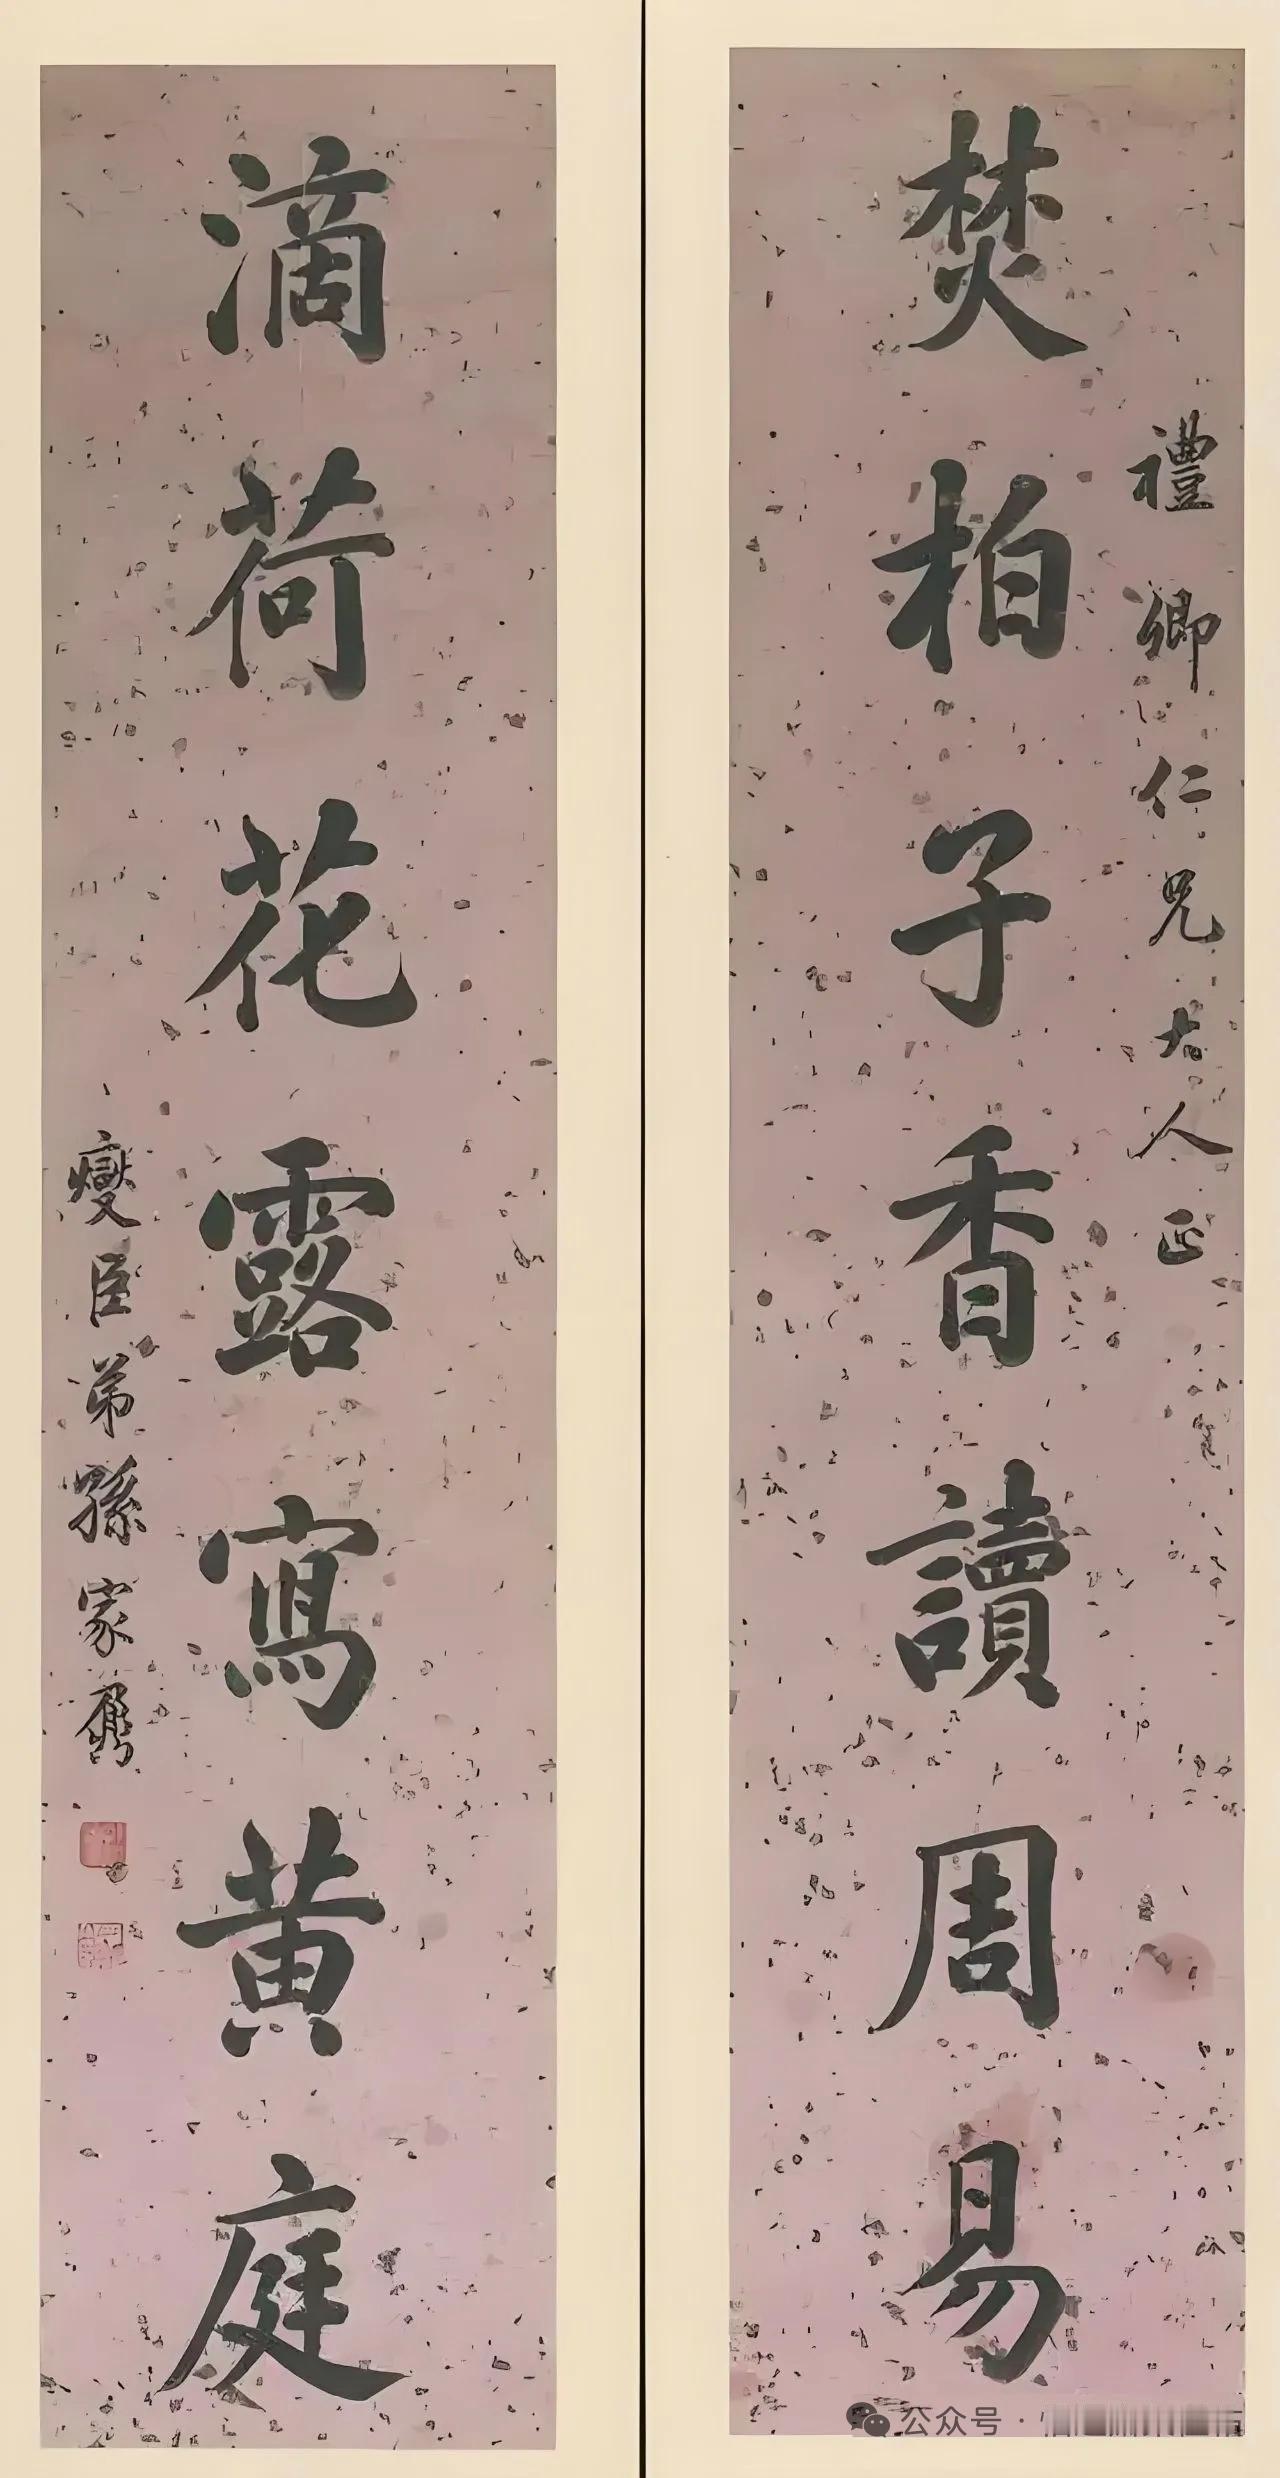 禮卿仁兄大人正
焚柏子香讀周易
滴荷花露寫黄庭
燮臣弟孫家鼐
公众号·